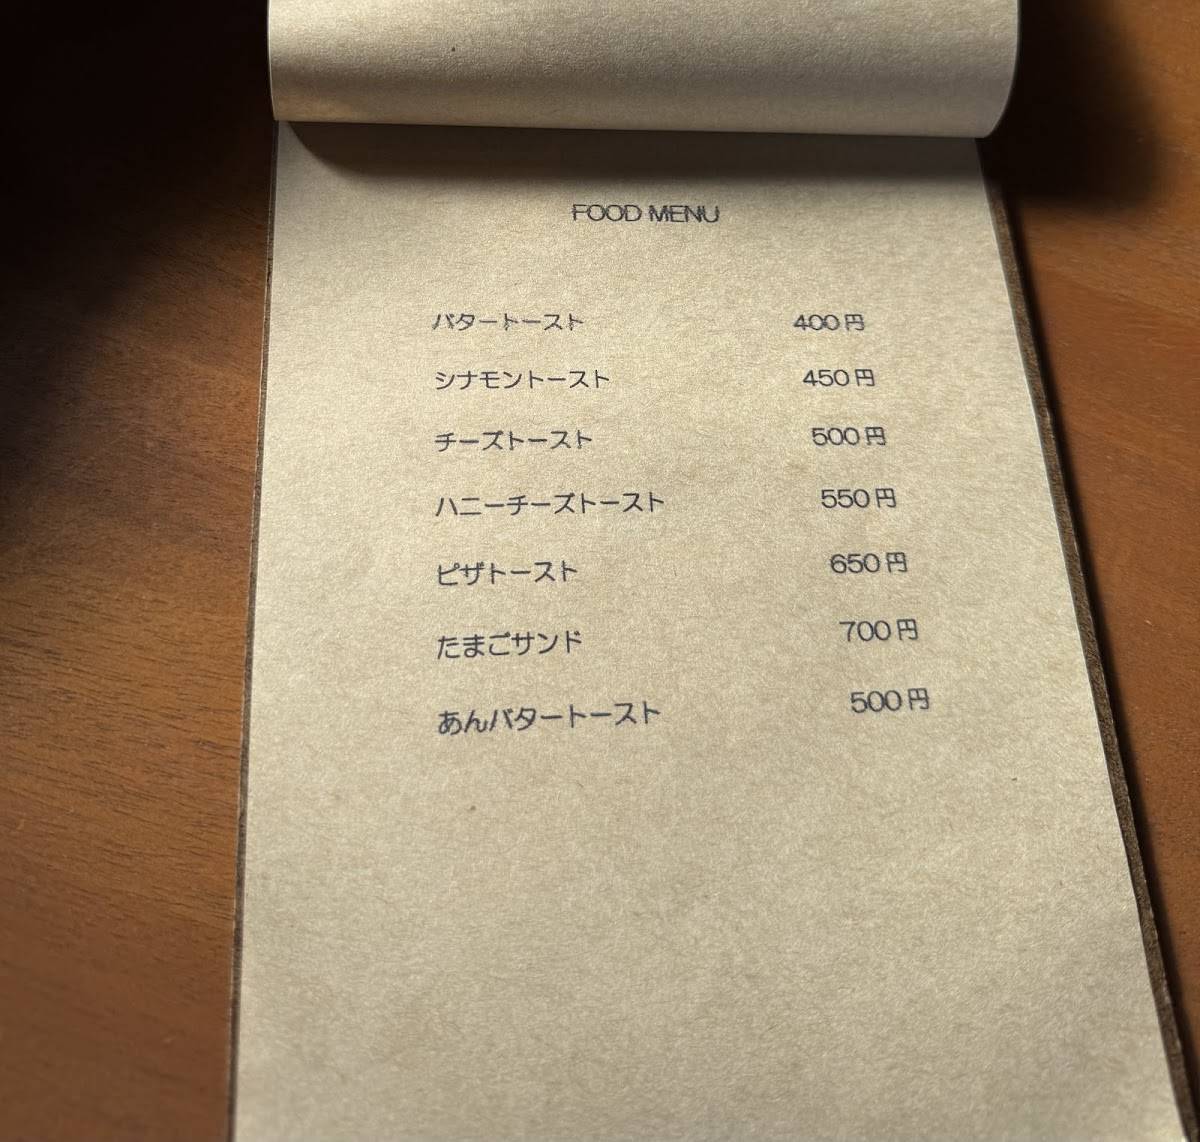 FOOD MENU
バタートースト 400円
シナモントースト 450円
チーズトースト 500円
ハニーチーズトースト 550円
ピザトースト 650円
たまごサンド 700円
あんバタートースト 500円